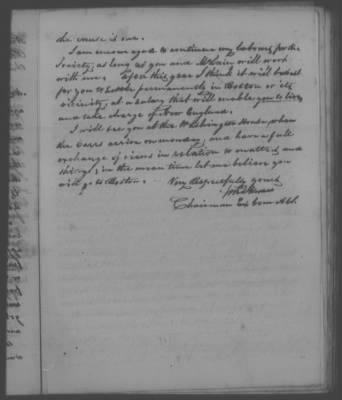 the cause is one.
I am encouraged to continue my labours for the
Society, as long as you and McLain will work
with me. Upon this year I think it will be best
for you to settle permanently in Boston or its
vicinity, at a salary that will enable you to live,
and take charge of New England.
I will see you at the Washington House, when
the cars arrive on monday, and have a full
exchange of views in relation to matters and
things; in the mean time let me believe you
will go to Boston. Very Respectfully yours,
Chairman Ex Com